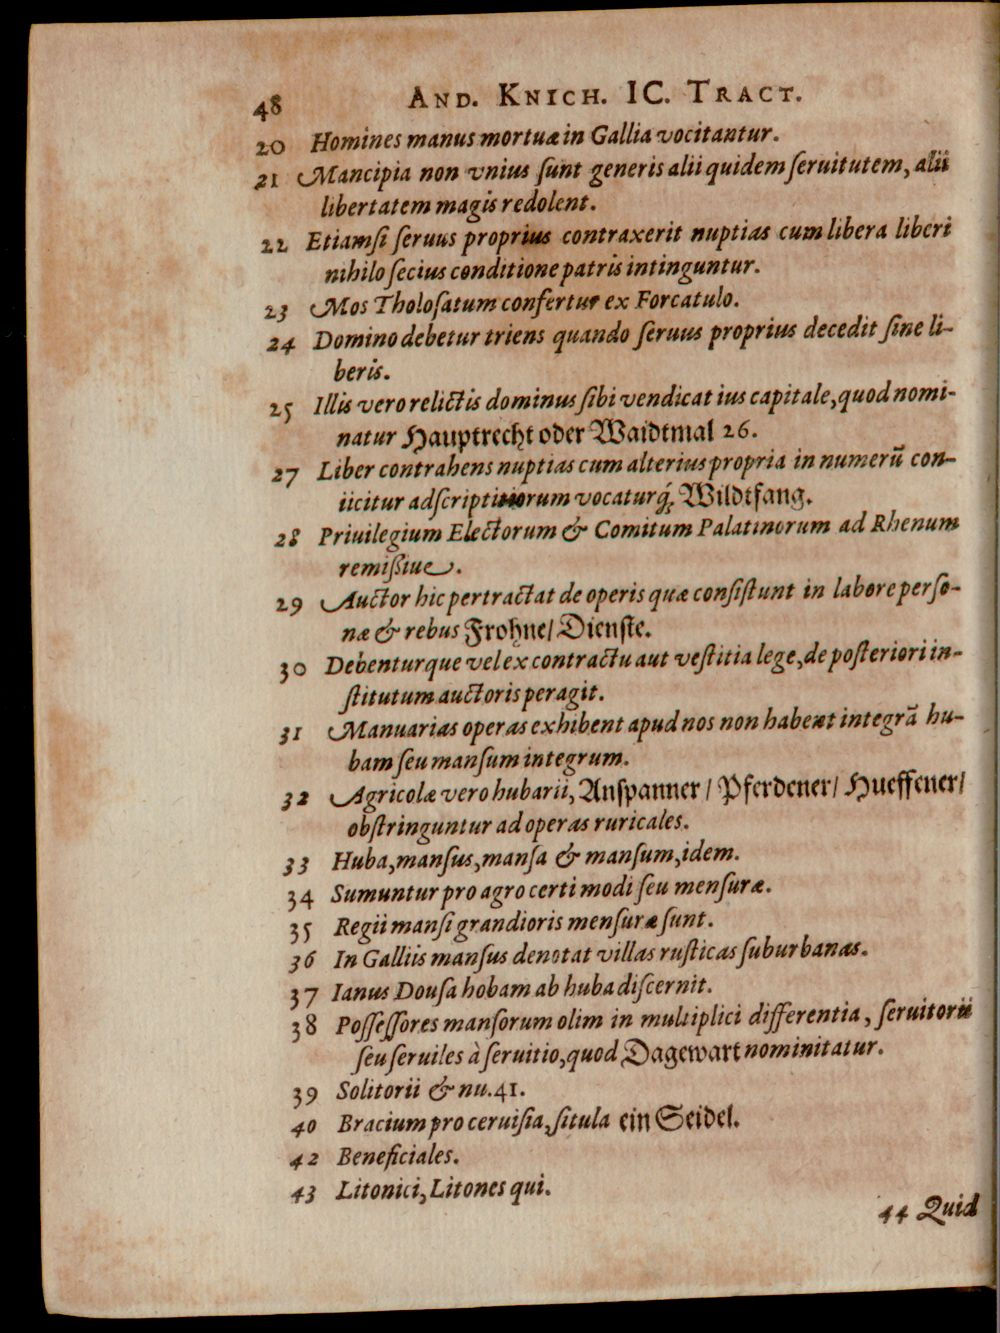 48 AND. KNICH. IC. TRACT.
20 Homines manus mortuæ in Gallia vocitantur.
21 Mancipia non vnius ſunt generis alii quidem ſeruitutem, alii
libertatem magis redolent.
22 Etiamſi ſeruus proprius contraxerit nuptias cum libera liberi
nihilo ſecius conditione patris intinguntur.
23 Mos Tholoſatum confertur ex Forcatulo.
24 Domino debetur triens quando ſeruus proprius decedit ſine li-
beris.
25 Illis vero relictis dominus ſibi vendicat ius capitale, quod nomi-
natur Hauptrecht oder Waidtmal 26.
27 Liber contrahens nuptias cum alterius propria in numerũ con-
iicitur adſcriptitiorum vocaturq́; Wildtfang.
28 Priuilegium Electorum & Comitum Palatinorum ad Rhenum
remißiue.
29 Auctor hic pertractat de operis quæ conſiſtunt in labore perſo-
næ & rebus Frohne/ Dienſte.
30 Debenturque vel ex contractu aut veſtitia lege, de poſteriori in-
ſtitutum auctoris peragit.
31 Manuarias operas exhibent apud nos non habent integrã hu-
bam ſeu manſum integrum.
32 Agricolæ vero hubarii, Anſpanner/ Pferdener/ Hueffener/
obſtringuntur ad operas ruricales.
33 Huba, manſus, manſa & manſum, idem.
34 Sumuntur pro agro certi modi ſeu menſuræ.
35 Regii manſi grandioris menſuræ ſunt.
36 In Galliis manſus denotat villas ruſticas ſuburbanas.
37 Ianus Douſa hobam ab huba diſcernit.
38 Poſſeſſores manſorum olim in multiplici differentia, ſeruitorii
ſeu ſeruiles à ſeruitio, quod Dagewart nominitatur.
39 Solitorii & nu. 41.
40 Bracium pro ceruiſia, ſitula ein Seidel.
42 Beneficiales.
43 Litonici, Litones qui.
44 Quid